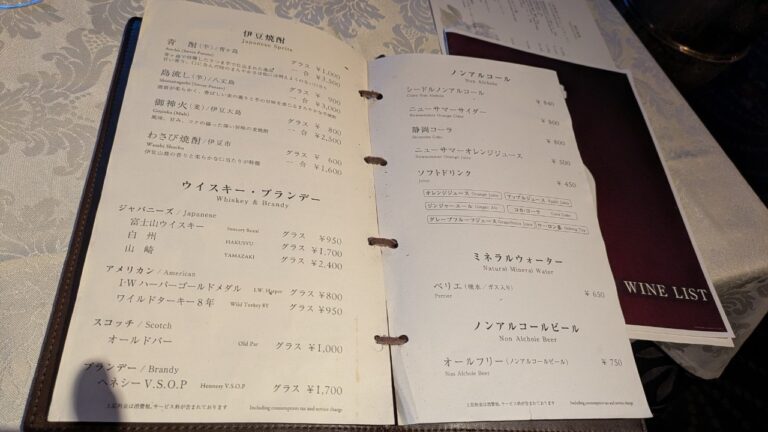 伊豆焼酎
Japanese Spritz
青 酎(芋)/青ヶ島
グラス ¥1,000
一 合 ¥3,500
島流し(芋)/八丈島
グラス ¥ 900
一 合 ¥3,000
御神火(麦)/伊豆大島
グラス ¥ 800
一 合 ¥2,500
風味、甘み、コクの揃った強い甘味の麦焼酎
わさび焼酎/伊豆市
Wasabi Shochu
グラス ¥ 600
一 合 ¥1,600
ウイスキー・ブランデー
Whiskey & Brandy
ジャパニーズ/Japanese
富士山ウイスキー グラス ¥950
白 州 HAKUSYU グラス ¥1,700
山 崎 YAMAZAKI グラス ¥2,400
アメリカン/American
I・Wハーパーゴールドメダル I.W. Harper グラス ¥800
ワイルドターキー8年 Wild Turkey 8Y グラス ¥950
スコッチ/Scotch
オールドパー Old Par グラス ¥1,000
ブランデー/Brandy
ヘネシーV.S.O.P Hennesy V.S.O.P グラス ¥1,700
上記料金は消費税、サービス料が含まれております Including consumption tax and service charge
ノンアルコール
Non Alchole
シードルノンアルコール
¥ 840
ニューサマーサイダー
¥ 800
静岡コーラ
¥ 800
ニューサマーオレンジジュース
¥ 500
ソフトドリンク
Juice
¥ 450
オレンジジュース Orange Juice アップルジュース Apple Juice
ジンジャーエール Ginger Ale コカ・コーラ Coca Cola
グレープフルーツジュース Grapefruits Juice ウーロン茶 Oolong Tea
ミネラルウォーター
Natural Mineral Water
ペリエ (発泡/ガス入り) ¥ 650
Perrier
ノンアルコールビール
Non Alchole Beer
オールフリー(ノンアルコールビール) ¥ 750
Non Alchole Beer
上記料金は消費税、サービス料が含まれております Including consumption tax and service charge
WINE LIST